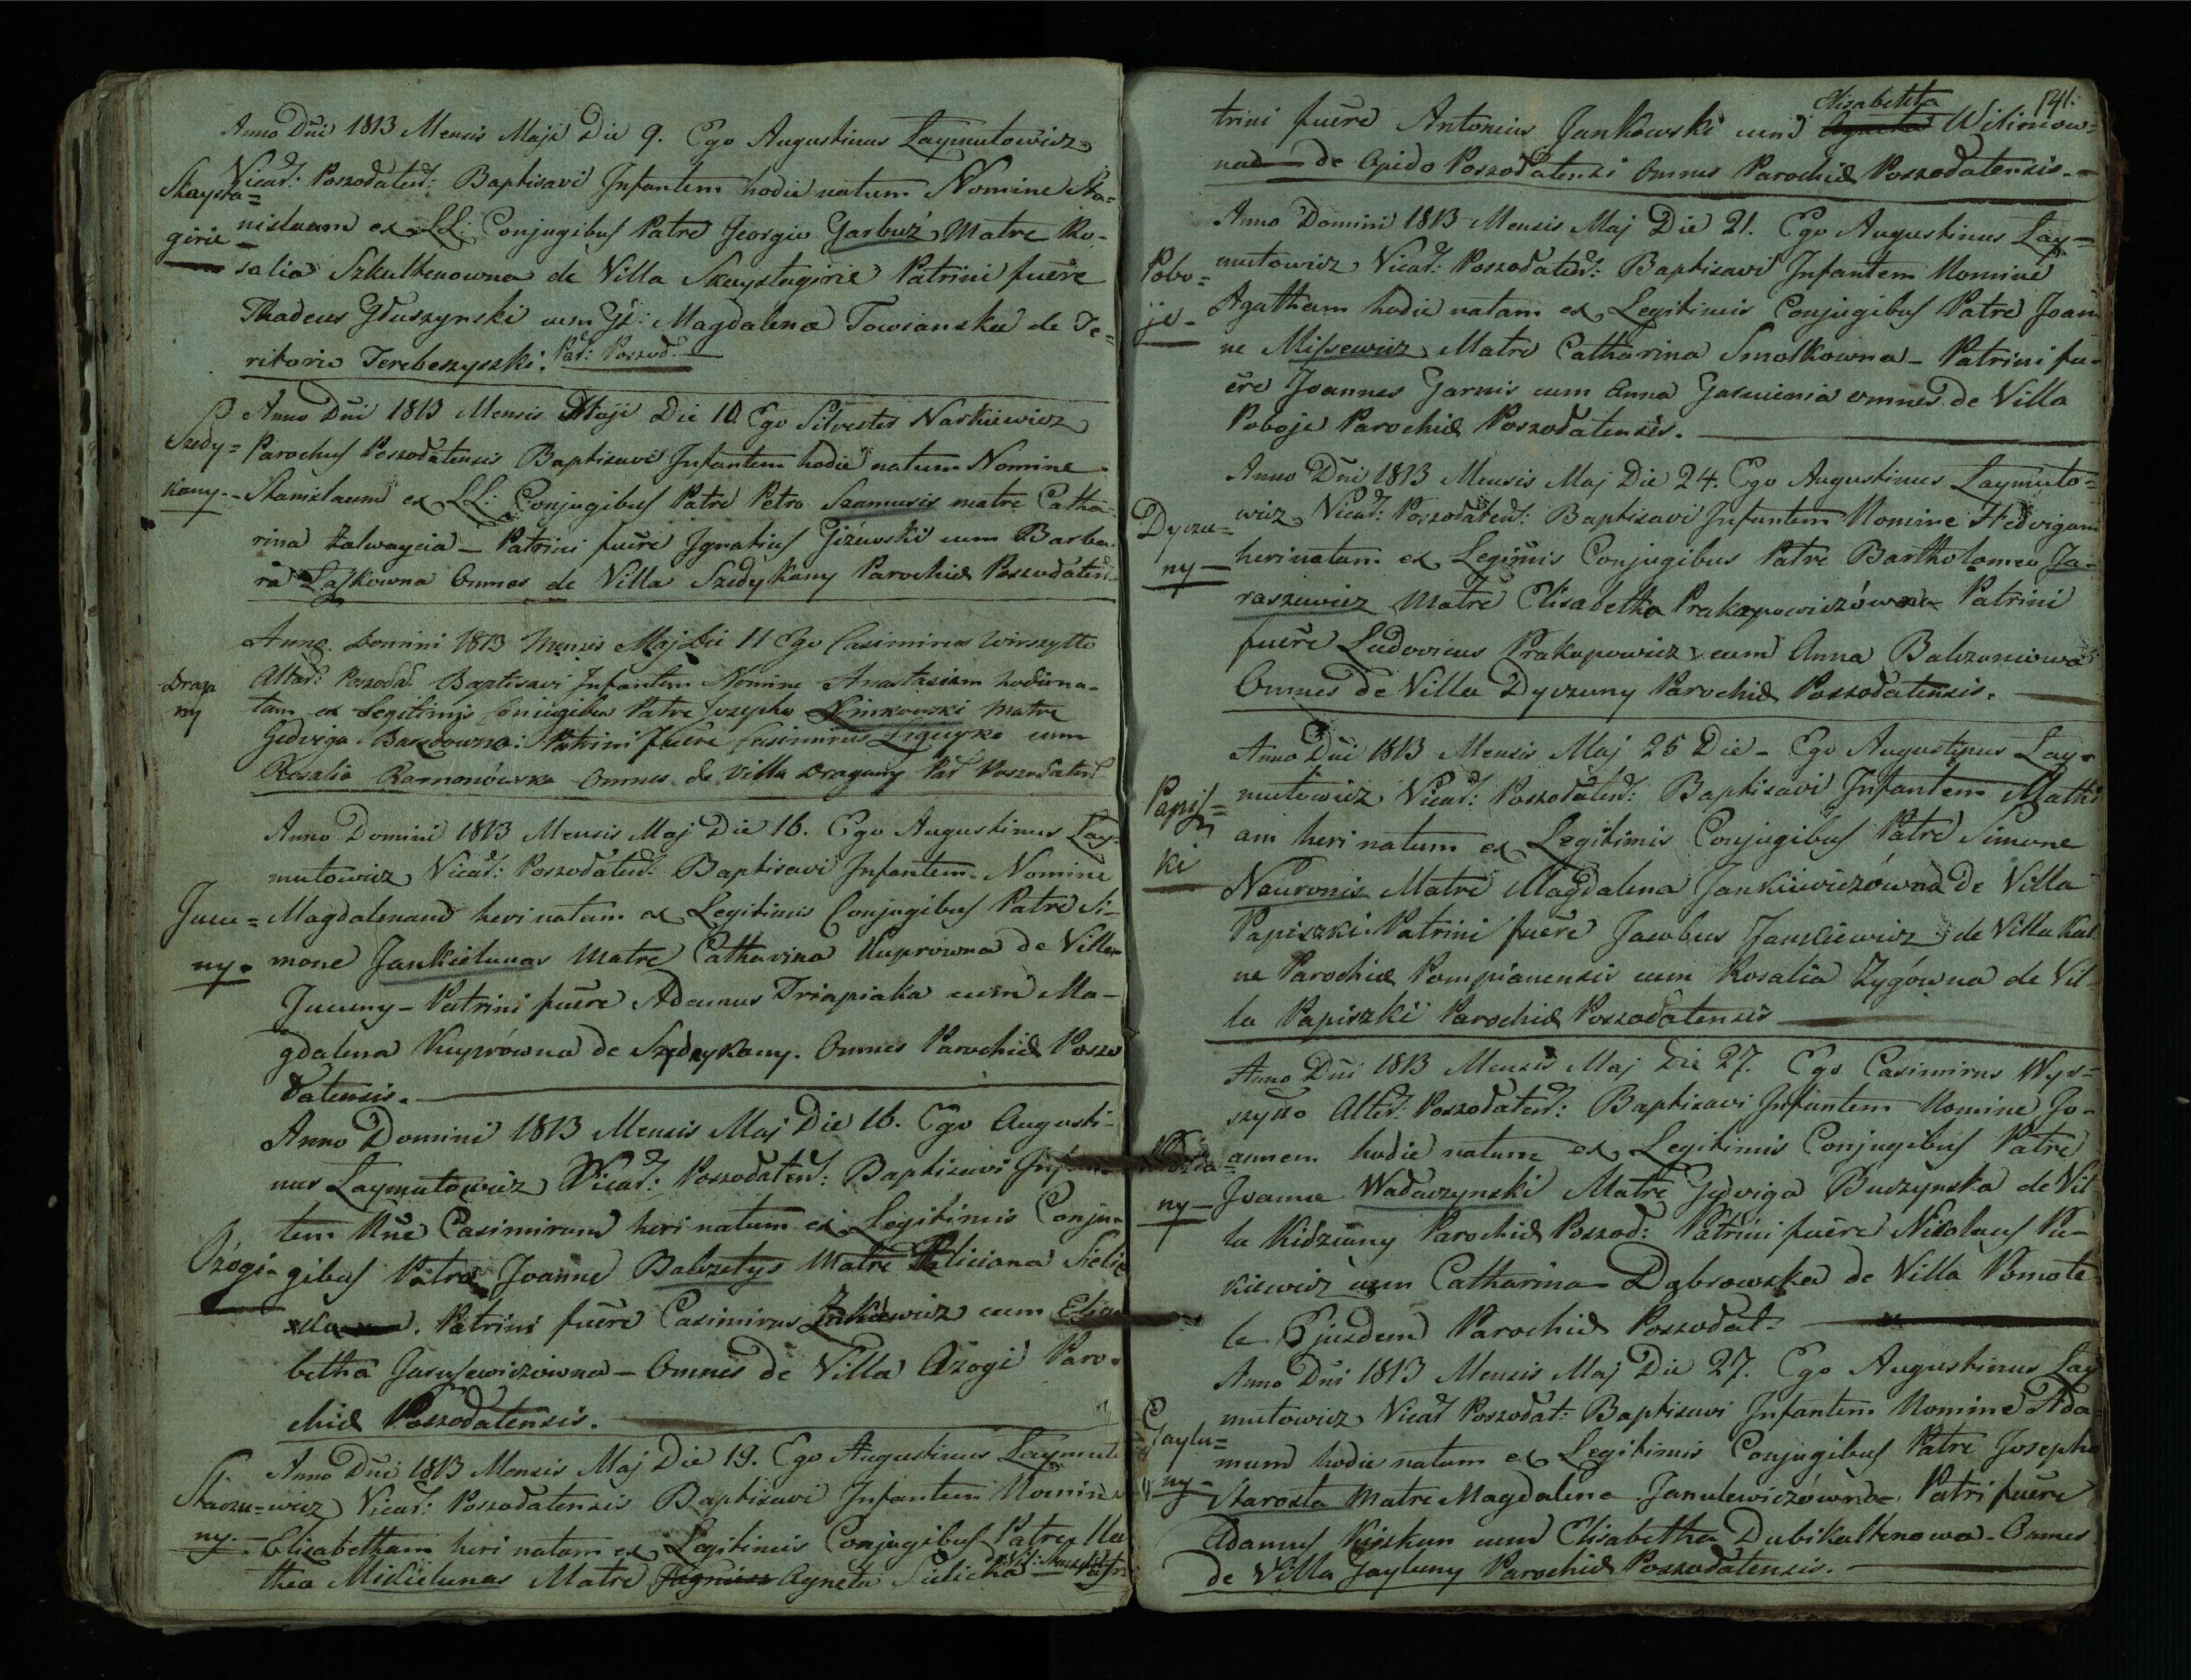 Anno Dñi 1813 Mensis Maji Die 9. Ego Augustinus Laymutowicz
Skaysta=
girie
Vicař: Poszođateñ: Baptisavi Infantem hodie natum Nomine Sta=
nislaum ex LL: Conjugibus Patre Georgio Garbuż Matre Ro-
salia Szkultenowna de Villa Skaystagirie Patrini fuēre
Thadeus Głuszynski cum GD: Magdalena Towianska de Te=
ritorio Terebeszyszki: Par: Poszod.
Anno Dñi 1813 Mensis Maji Die 10 Ego Silvester Narkiewicz
Szedy=
kany.
Parochus Poszođatensis Baptisavi Infantem hodie natum Nomine
Stanislaum ex LL: Conjugibus Patre Petro Szamusis matre Catha-
rina Zalwaycia – Patrini fuēre Ignatius Giżewski cum Barba-
ra Laskowna Omnes de Villa Szedykany Parochiæ Poszođateñ.
Anno Domini 1813 Mensis Maj Die 11 Ego Casimirus Wirszyłło
Draga
ny
Altař: Poszođat Baptisavi Infantem Nomine Anastasiam hodie na-
tam ex Legitimis Conjugibus Patre Josepho Linkowski Matre
Gedviga Barzdowna: Patrini fuēre Casimirus Ligeyko cum
Rosalia Ramonówska Omnes de Villa Dragany Par Poszođateñ
Anno Domini 1813 Mensis Maj Die 16. Ego Augustinus Lay-
Jucu=
ny.
mutowicz Vicař: Poszođateñ: Baptisavi Infantem Nomine
Magdalenam heri natam ex Legitimis Conjugibus Patre Si-
mone Jankielunas Matre Catharina Kuprowna de Villa
Jucuny – Patrini fuēre Adamus Triapiaka cum Ma-
gdalena Kuprówna de Szedykany. Omnes Parochiæ Poszo
đatensis.
Anno Domini 1813 Mensis Maj Die 16. Ego Augusti-
nus Laymutowicz Vicař: Poszođateñ: Baptisavi Infan
tem Nñe Casimirum heri natum ex Legitimis Conju-
Ożogi
gibus Patre Joanne Balszetys Matre Feliciana Sielic
ka. Patrini fuēre Casimirus cum Elisa
betha Jarusewiczowna – Omnes de Villa Ozogi Paro-
chiæ Poszođatensis.
Anno Dñi 1813 Mensis Maj Die 19. Ego Augustinus Laymuto
Skaczu=
ny.
wicz Vicař: Poszođatensis Baptisavi Infantem Nomine
Elisabetham heri natam ex Legitimis Conjugibus Patre Ma
theo Mickielunas Matre Agneta Sielicka de Vil: Patri
141.
Elisabetha
trini fuēre Antonius Jankowski cum Wilimow=
na de Opido Poszođatensi Omnes Parochiæ Poszođatensis.
Anno Domini 1813 Mensis Maj Die 21. Ego Augustinus Lay=
Pobo=
je
mutowicz Vicař: Poszođateñ: Baptisavi Infantem Nomine
Agatham hodie natam ex Legitimis Conjugibus Patre Joan
ne Missewicz Matre Catharina Smolkowna – Patrini fu-
ēre Joannes Garnis cum Anna Gasiunia omnes de Villa
Poboje Parochiæ Poszođatensis.
Anno Dñi 1813 Mensis Maj Die 24. Ego Augustinus Laymuto=
Dyczu=
ny
wicz Vicař: Poszođateñ: Baptisavi Infantem Nomine Hedvigam
heri natam ex Legimis Conjugibus Patre Bartholomeo Ja-
raszewicz Matre Elisabetha Prakapowiczówna Patrini
fuēre Ludovicus Prakapowicz cum Anna Balczuniowa
Omnes de Villa Dyczuny Parochiæ Poszođatensis.
Anno Dñi 1813 Mensis Maj 25 Die – Ego Augustinus Lay-
Papisz=
ki
mutowicz Vicař: Poszođateñ: Baptisavi Infantem Mathi
am heri natum ex Legitimis Conjugibus Patre Simone
Nauronis Matre Magdalena Jankiewiczówna de Villa
Papiszki Patrini fuēre Jacobus Jankiewicz de Villa Kal
ne Parochiæ Pompianensis cum Rosalia Zygówna de Vil-
la Papiszki Parochiæ Poszođatensis
Anno Dñi 1813 Mensis Maj Die 27. Ego Casimirus Wyr=
szyłło Alteř: Poszođateñ: Baptisavi Infantem Nomine Jo-
ny
annem hodie natum ex Legitimis Conjugibus Patre
Joanne Wadaczynski Matre Gedviga Buczynska de Vil-
la Kidziany Parochiæ Poszod: Patrini fuēre Nikolaus Pu-
kiewicz cum Catharina Dąbrowska de Villa Pomole
le Ejusdem Parochiæ Poszođat.
Anno Dñi 1813 Mensis Maj Die 27. Ego Augustinus Lay
Gaylu=
ny
mutowicz Vicař Poszođat: Baptisavi Infantem Nomine Ada
mum hodie natum ex Legitimis Conjugibus Patre Josepho
Starosta Matre Magdalena Janulewiczówna Patri fuēre
Adamus Kiszkun cum Elisabetha Dubikaltenowa – Omnes
de Villa Gayluny Parochiæ Poszođatensis.